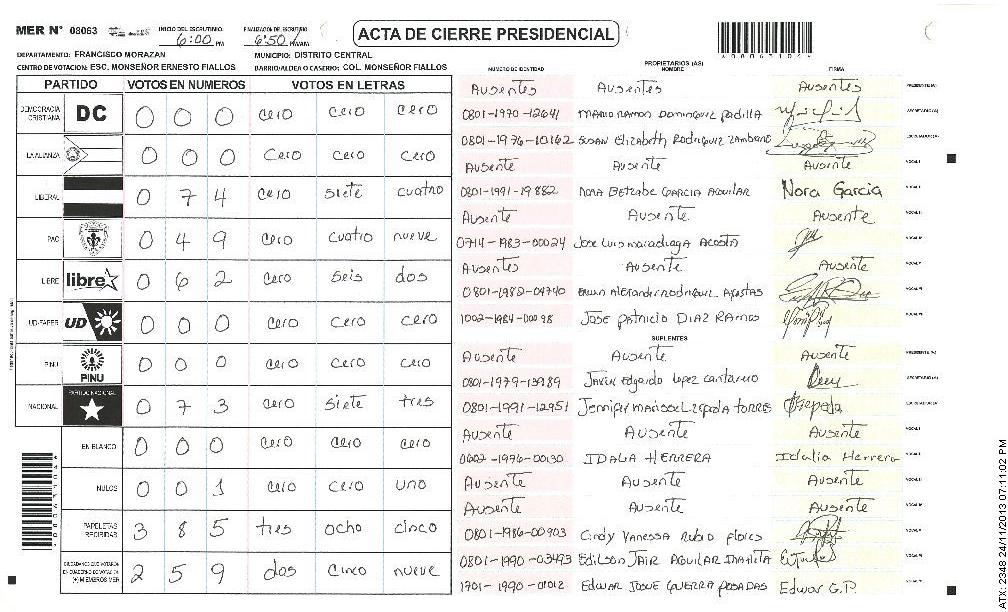 MER Nº 08063 INICIO DEL ESCRUTINIO 6:00 PM FINALIZACION DE ESCRUTINIO 6:50 PM/AM ACTA DE CIERRE PRESIDENCIAL
DEPARTAMENTO: FRANCISCO MORAZAN MUNICIPIO: DISTRITO CENTRAL
CENTRO DE VOTACION: ESC. MONSEÑOR ERNESTO FIALLOS BARRIO/ALDEA O CASERIO: COL. MONSEÑOR FIALLOS
PARTIDO VOTOS EN NUMEROS VOTOS EN LETRAS
DEMOCRACIA CRISTIANA DC 0 0 0 cero cero cero
LA ALIANZA 0 0 0 cero cero cero
LIBERAL 0 7 4 cero siete cuatro
PAC 0 4 9 cero cuatro nueve
LIBRE libre 0 6 2 cero seis dos
UD-FAPER UD 0 0 0 cero cero cero
PINU PINU 0 0 0 cero cero cero
NACIONAL PARTIDO NACIONAL 0 7 3 cero siete tres
EN BLANCO 0 0 0 cero cero cero
NULOS 0 0 1 cero cero uno
PAPELETAS RECIBIDAS 3 8 5 tres ocho cinco
CIUDADANOS QUE VOTARON EN CUADERNO DE VOTACION (+) MIEMBROS MER 2 5 9 dos cinco nueve
PROPIETARIOS (AS)
NUMERO DE IDENTIDAD NOMBRE FIRMA
Ausentes Ausentes Ausentes PRESIDENTE (A)
0801-1990-12641 Mario Ramon Dominguez Padilla SECRETARIO (A)
0801-1976-10162 Susan Elizabeth Rodriguez Zambrano ESCRUTADOR (A)
Ausente Ausente Ausente VOCAL I
0801-1991-19882 Nora Betzabe Garcia Aguilar Nora Garcia VOCAL II
Ausente Ausente Ausente VOCAL III
0714-1983-00024 Jose Luis Maradiaga Acosta VOCAL IV
Ausentes Ausente Ausente VOCAL V
0801-1982-04740 Alexander Rodriguez VOCAL VI
1002-1984-00098 Jose Patricio Diaz Ramos
SUPLENTES
Ausente Ausente Ausente PRESIDENTE (A)
0801-1979-13989 Javier Edgardo Lopez Cantarero SECRETARIO (A)
0801-1991-12951 Jennifer Marisol Zepeda Torres Zepeda ESCRUTADOR (A)
Ausente Ausente Ausente VOCAL I
0602-1996-00130 IDALIA HERRERA Idalia Herrera VOCAL II
Ausente Ausente Ausente VOCAL III
Ausente Ausente Ausente
0801-1986-00903 Cindy Vanessa Rubio Flores
0801-1990-03493 Edilson Jair Aguilar
1701-1990-01012 Edwar Josue Guerra Posadas Edwar G.P.
ATX-2348 24/11/2013 07:11:02 PM